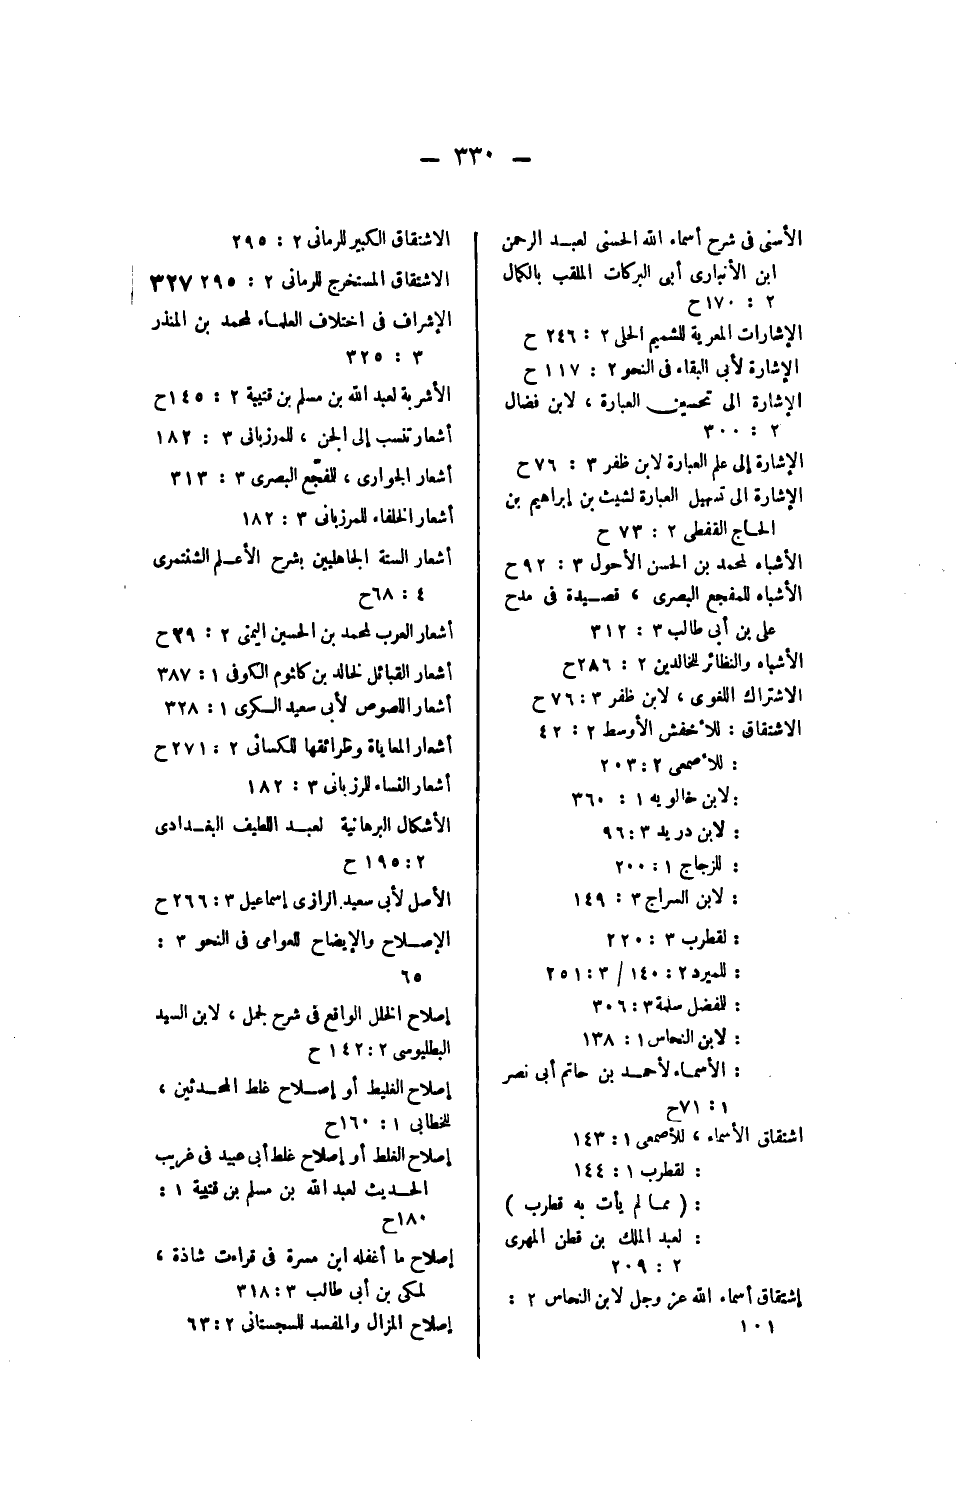 — ٣٣٠ —
الأسنى فى شرح أسماء الله الحسنى لعبد الرحمن
ابن الأنبارى أبى البركات الملقب بالكمال
٢ : ١٧٠ح
الإشارات المعرية للشميم الحلى ٢ : ٢٤٦ ح
الإشارة لأبى البقاء فى النحو ٢ : ١١٧ ح
الإشارة الى تحسين العبارة ، لابن فضال
٢ : ٣٠٠
الإشارة إلى علم العبارة لابن ظفر ٣ : ٧٦ح
الإشارة الى تسهيل العبارة لشيث بن إبراهيم بن
الحاج القفطى ٢ : ٧٣ ح
الأشباه لمحمد بن الحسن الأحول ٣ : ٩٢ح
الأشباه للمفجع البصرى ، قصيدة فى مدح
على بن أبى طالب ٣ : ٣١٢
الأشباه والنظائر للخالدين ٢ : ٢٨٦ح
الاشتراك اللغوى ، لابن ظفر ٣ : ٧٦ح
الاشتقاق : للأخفش الأوسط ٢ : ٤٢
: للأصمعى ٢ : ٢٠٣
: لابن خالويه ١ : ٣٦٠
: لابن دريد ٣ : ٩٦
: للزجاج ١ : ٢٠٠
: لابن السراج ٣ : ١٤٩
: لقطرب ٣ : ٢٢٠
: للمبرد ٢ : ١٤٠ / ٣ : ٢٥١
: للفضل سلمة ٣ : ٣٠٦
: لابن النحاس ١ : ١٣٨
: الأسماء لأحمد بن حاتم أبى نصر
١ : ٧١ح
اشتقاق الأسماء ، للأصمعى ١ : ١٤٣
: لقطرب ١ : ١٤٤
: ( مما لم يأت به قطرب )
: لعبد الملك بن قطن المهرى
٢ : ٢٠٩
إشتقاق أسماء الله عز وجل لابن النحاس ٢ :
١٠١
الاشتقاق الكبير للرمانى ٢ : ٢٩٥
الاشتقاق المستخرج للرمانى ٢ : ٢٩٥ ٣٢٧
الإشراف فى اختلاف العلماء لمحمد بن المنذر
٣ : ٣٢٥
الأشربة لعبد الله بن مسلم بن قتيبة ٢ : ١٤٥ح
أشعار تنسب إلى الجن ، للمرزبانى ٣ : ١٨٢
أشعار الجوارى ، للفجّع البصرى ٣ : ٣١٣
أشعار الخلفاء للمرزبانى ٣ : ١٨٢
أشعار الستة الجاهليين بشرح الأعلم الشنتمرى
٤ : ٦٨ح
أشعار العرب لمحمد بن الحسين اليمنى ٢ : ٣٩ح
أشعار القبائل لخالد بن كلثوم الكوفى ١ : ٣٨٧
أشعار اللصوص لأبى سعيد السكرى ١ : ٣٢٨
أشعار المعاياة وطرائقها للكسائى ٢ : ٢٧١ح
أشعار النساء للرزبانى ٣ : ١٨٢
الأشكال البرهانية لعبد اللطيف البغدادى
٢ : ١٩٥ ح
الأصل لأبى سعيد الرازى إسماعيل ٣ : ٢٦٦ح
الإصلاح والإيضاح للعوامى فى النحو ٣ :
٦٥
إصلاح الخلل الواقع فى شرح لجمل ، لابن السيد
البطليوسى ٢ : ١٤٢ ح
إصلاح الغليط أو إصلاح غلط المحدثين ،
للخطابى ١ : ١٦٠ح
إصلاح الغلط أو إصلاح غلط أبى عبيد فى غريب
الحديث لعبد الله بن مسلم بن قتيبة ١ :
١٨٠ح
إصلاح ما أغفله ابن مسرة فى قراءت شاذة ،
لمكى بن أبى طالب ٣ : ٣١٨
إصلاح المزال والمفسد للسجستانى ٢ : ٦٣